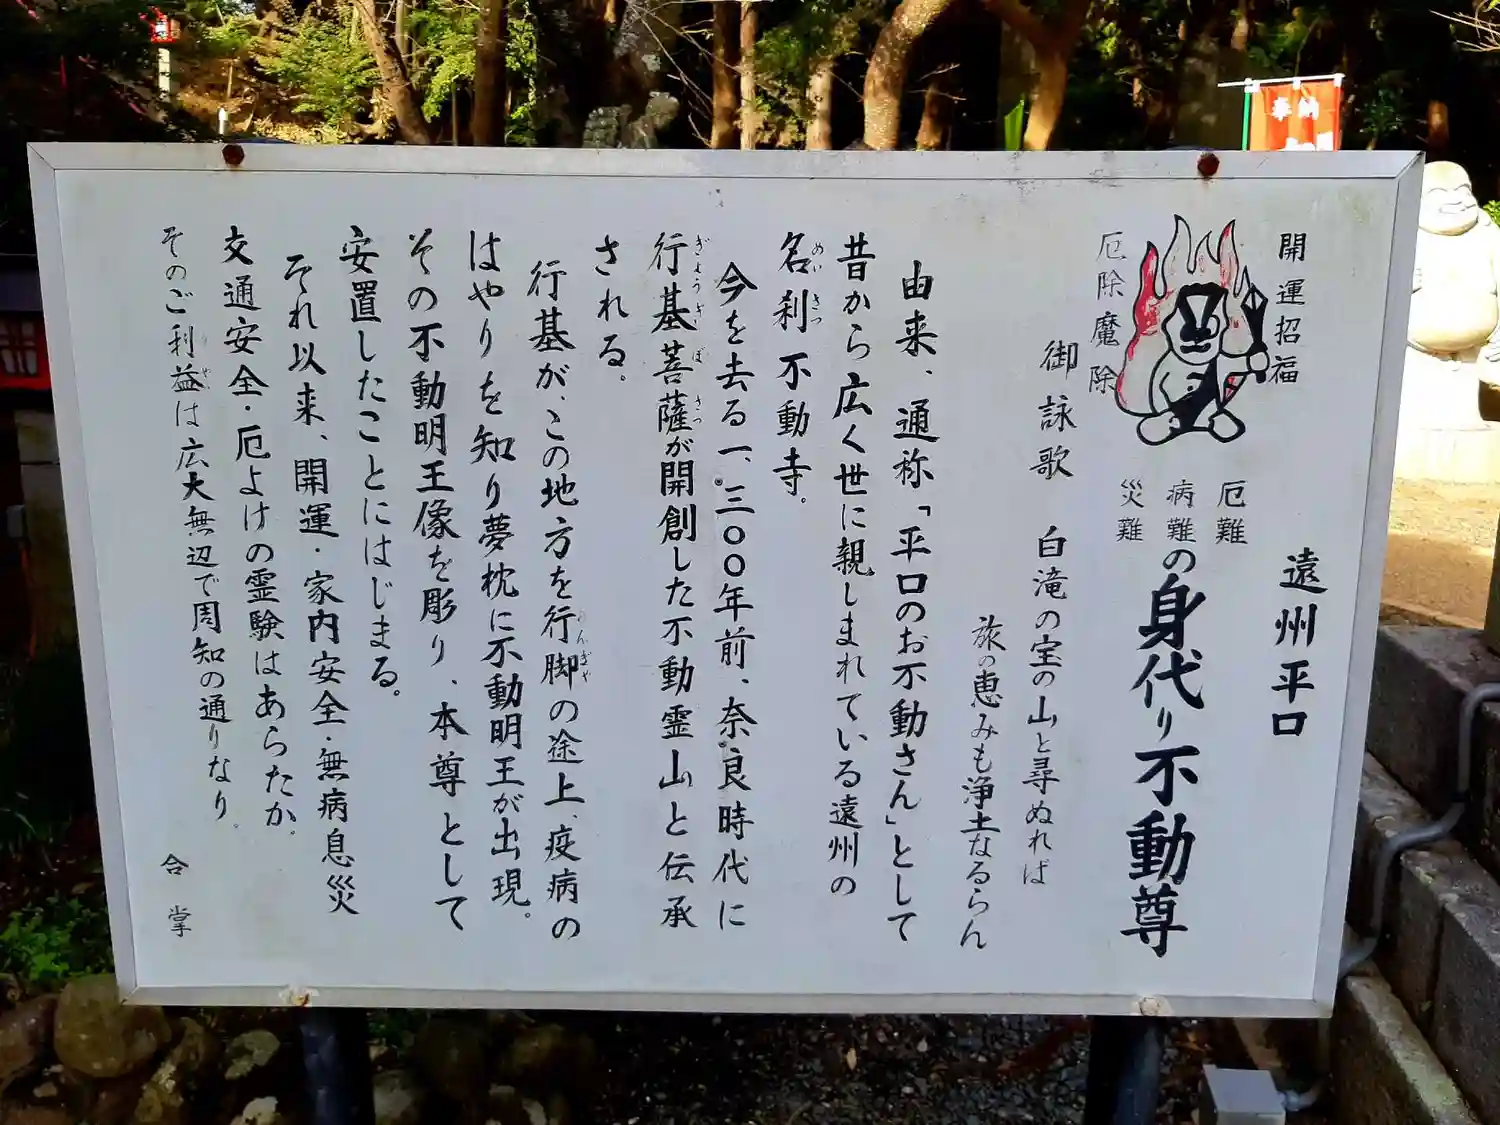 遠州平口
開運招福
厄除魔除
厄難
病難
災難
の身代り不動尊
御詠歌
白滝の宝の山と尋ぬれば
旅の恵みも浄土なるらん
由来、通称「平口のお不動さん」として
昔から広く世に親しまれている遠州の
名刹不動寺。
めいさつ
今を去る一、三〇〇年前、奈良時代に
行基菩薩が開創した不動霊山と伝承
ぎょうぎぼさつ
される。
行基が、この地方を行脚の途上、疫病の
あんぎゃ
はやりを知り夢枕に不動明王が出現。
その不動明王像を彫り、本尊として
安置したことにはじまる。
それ以来、開運・家内安全・無病息災
交通安全・厄よけの霊験はあらたか。
そのご利益は広大無辺で周知の通りなり。
合掌
奉納